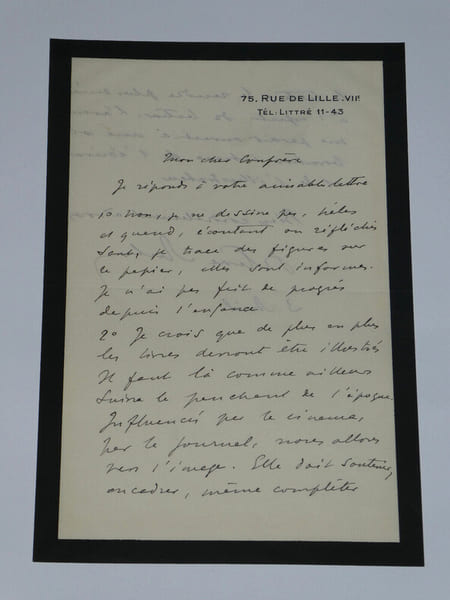 75, RUE DE LILLE. VIIE
TÉL: LITTRÉ 11-43
Mon cher confrère
Je réponds à votre aimable lettre
1o Non, je ne dessine pas,
et quand, écoutant ou réfléchis
sant, je trace des figures sur
le papier, elles sont informes.
Je n'ai pas fait de progrès
depuis l'enfance
2o Je crois que de plus en plus
les livres devront être illustrés
Il faut là comme ailleurs
suivre le penchant de l'époque.
Influencés par le cinéma,
par le journal, nous allons
vers l'image. Elle doit soutenir,
encadrer, même compléter